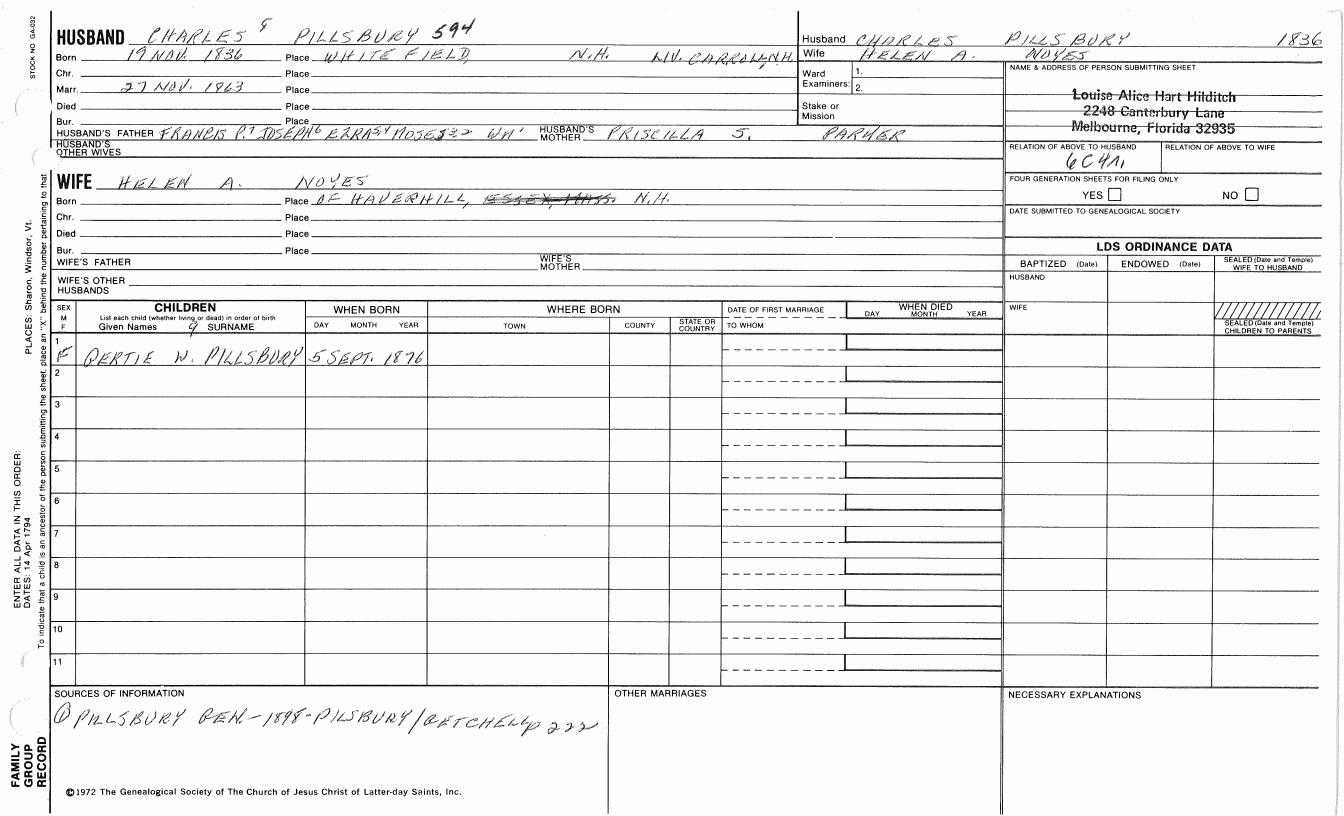 STOCK NO. GA-032
HUSBAND CHARLES 8 PILLSBURY 594
Born 19 NOV. 1836 Place WHITE FIELD, N.H. LIV. CARROLL, N.H.
Chr. Place
Marr. 27 NOV. 1863 Place
Died Place
Bur. Place
HUSBAND'S FATHER FRANCIS P.7 JOSEPH6 EZRA5,4 MOSES3,2 WM1 HUSBAND'S MOTHER PRISCILLA S. PARKER
HUSBAND'S OTHER WIVES
Husband CHARLES PILLSBURY 1836
Wife HELEN A. NOYES
Ward Examiners: 1.
2.
Stake or Mission
NAME & ADDRESS OF PERSON SUBMITTING SHEET
Louise Alice Hart Hilditch
2248 Canterbury Lane
Melbourne, Florida 32935
RELATION OF ABOVE TO HUSBAND RELATION OF ABOVE TO WIFE
6C4R
WIFE HELEN A. NOYES
Born Place OF HAVERHILL, ESSEX, MASS. N.H.
Chr. Place
Died Place
Bur. Place
WIFE'S FATHER WIFE'S MOTHER
WIFE'S OTHER HUSBANDS
FOUR GENERATION SHEETS FOR FILING ONLY
YES NO
DATE SUBMITTED TO GENEALOGICAL SOCIETY
LDS ORDINANCE DATA
BAPTIZED (Date) ENDOWED (Date) SEALED (Date and Temple) WIFE TO HUSBAND
HUSBAND
WIFE
SEALED (Date and Temple) CHILDREN TO PARENTS
SEX M F CHILDREN WHEN BORN WHERE BORN DATE OF FIRST MARRIAGE WHEN DIED
List each child (whether living or dead) in order of birth
Given Names 9 SURNAME DAY MONTH YEAR TOWN COUNTY STATE OR COUNTRY TO WHOM DAY MONTH YEAR
1 F BERTIE W. PILLSBURY 5 SEPT. 1876
2
3
4
5
6
7
8
9
10
11
SOURCES OF INFORMATION OTHER MARRIAGES NECESSARY EXPLANATIONS
① PILLSBURY GEN. - 1898 - PILSBURY/GETCHELL p 222
©1972 The Genealogical Society of The Church of Jesus Christ of Latter-day Saints, Inc.
FAMILY GROUP RECORD
ENTER ALL DATA IN THIS ORDER:
DATES: 14 Apr 1794 PLACES: Sharon, Windsor, Vt.
To indicate that a child is an ancestor of the person submitting the sheet, place an "X" behind the number pertaining to that